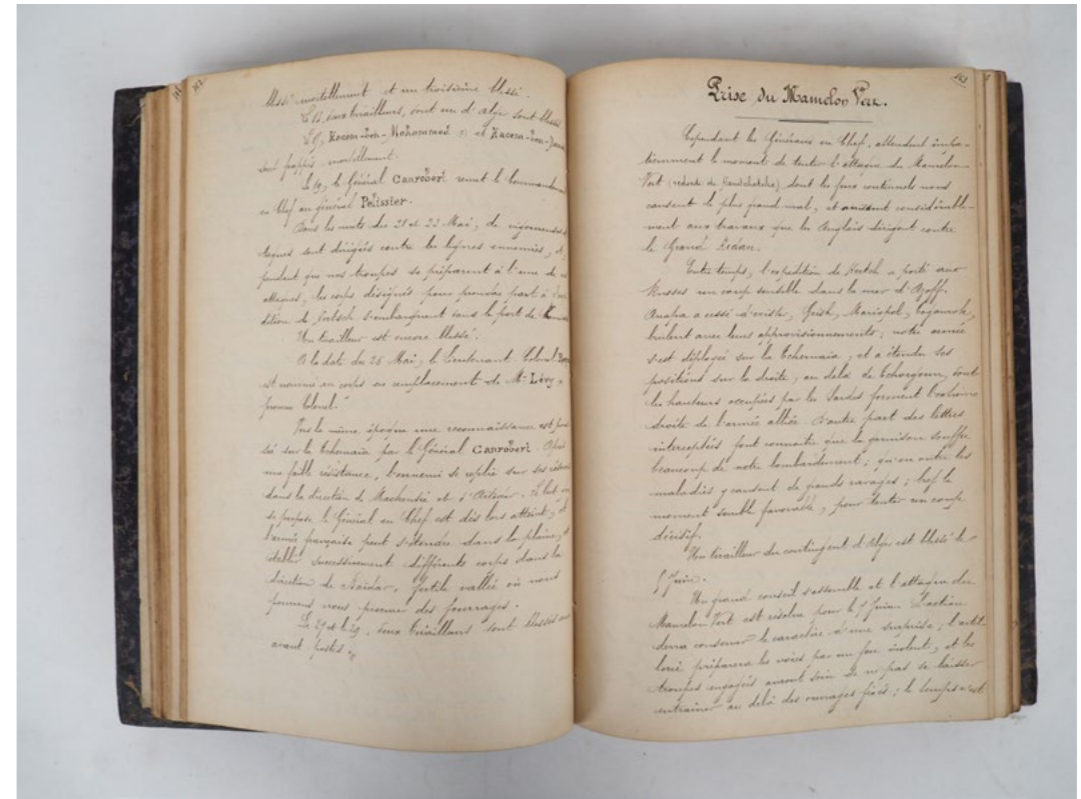 162
blessé mortellement et un troisième blessé.
Le 12, deux tirailleurs, dont un d'Alger sont blessés
Le 17, Kacem-ben-Mohammed et Kacem-ben-
sont frappés mortellement.
Le 19, le Général Canrobert remet le Commandement
en Chef au général Pélissier.
Dans les nuits des 21 et 22 Mai, de vigoureuses
attaques sont dirigées contre les lignes ennemies, et,
pendant que nos troupes se préparent à l'une de ces
attaques, les corps désignés pour prendre part à
dition de Kertsch s'embarquent dans le port de
Un tirailleur est encore blessé.
A la date du 26 Mai, le Lieutenant Colonel
est nommé au corps en remplacement de Mr Lévy
promu Colonel.
Vers la même époque une reconnaissance est
sée sur la Tchernaïa par le Général Canrobert. Après
une faible résistance, l'ennemi se replie sur ses
dans la direction de Mackensie et d'. Le but que
se propose le Général en Chef est dès lors atteint, et
l'armée française peut s'étendre dans la plaine, et
établir successivement différents corps dans la
direction de Baïdar, fertile vallée où nous
pouvons nous procurer des fourrages.
Le 27 et le 29, deux tirailleurs sont blessés aux
avant-postes.
163
Prise du Mamelon Vert.
Cependant les Généraux en Chef, attendent impa-
tiemment le moment de tenter l'attaque du Mamelon
Vert (redoute de Kamtchatcka) dont les feux continuels nous
causent le plus grand mal, et nuisent considérable-
ment aux travaux que les Anglais dirigent contre
le Grand Redan.
Entre temps, l'expédition de Kertch a porté aux
Russes un coup sensible dans la mer d'Azoff.
Anapa a cessé d'exister, Yeisk, Mariopol, Taganrok,
brûlent avec leurs approvisionnements; notre armée
s'est déployée sur la Tchernaïa, et a étendu ses
positions sur la droite, au delà de Tchorgoun, dont
les hauteurs occupées par les Sardes forment l'extrême
droite de l'armée alliée. D'autre part des lettres
interceptées font connaître que la garnison souffre
beaucoup de notre bombardement; qu'en outre les
maladies y causent de grands ravages; bref le
moment semble favorable, pour tenter un coup
décisif.
Un tirailleur du contingent d'Alger est blessé le
Juin.
Un grand conseil s'assemble et l'attaque du
Mamelon Vert est résolue pour le 7 Juin. L'action
devra conserver le caractère d'une surprise; l'artil-
lerie préparera les voies par un feu violent, et les
troupes engagées auront soin de ne pas se laisser
entraîner au delà des ouvrages fixés; le temps n'est